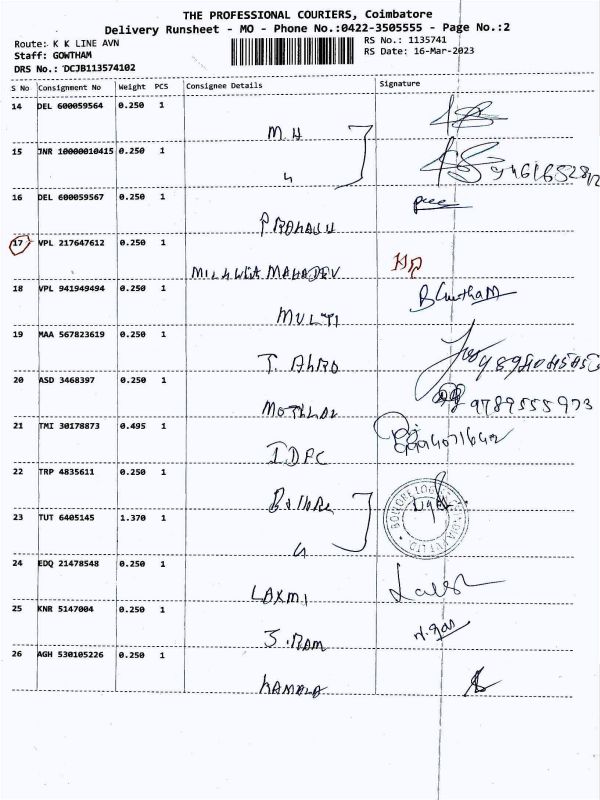 THE PROFESSIONAL COURIERS, Coimbatore
Delivery Runsheet - MO - Phone No.:0422-3505555 - Page No.:2
Route: K K LINE AVN
RS No.: 1135741
Staff: GOWTHAM
RS Date: 16-Mar-2023
DRS No.: DCJB113574102
S No Consignment No Weight PCS Consignee Details Signature
14 DEL 600059564 0.250 1
M.H
15 JNR 10000010415 0.250 1
16 DEL 600059567 0.250 1
PROHASH
17 VPL 217647612 0.250 1
MAHADEV
18 VPL 941949494 0.250 1
MULTI
19 MAA 567823619 0.250 1
20 ASD 3468397 0.250 1
9789555973
21 TMI 30178873 0.495 1
IDPC
22 TRP 4835611 0.250 1
Bollore
23 TUT 6405145 1.370 1
24 EDQ 21478548 0.250 1
LAXMI
25 KNR 5147004 0.250 1
26 AGH 530105226 0.250 1
KAMALA